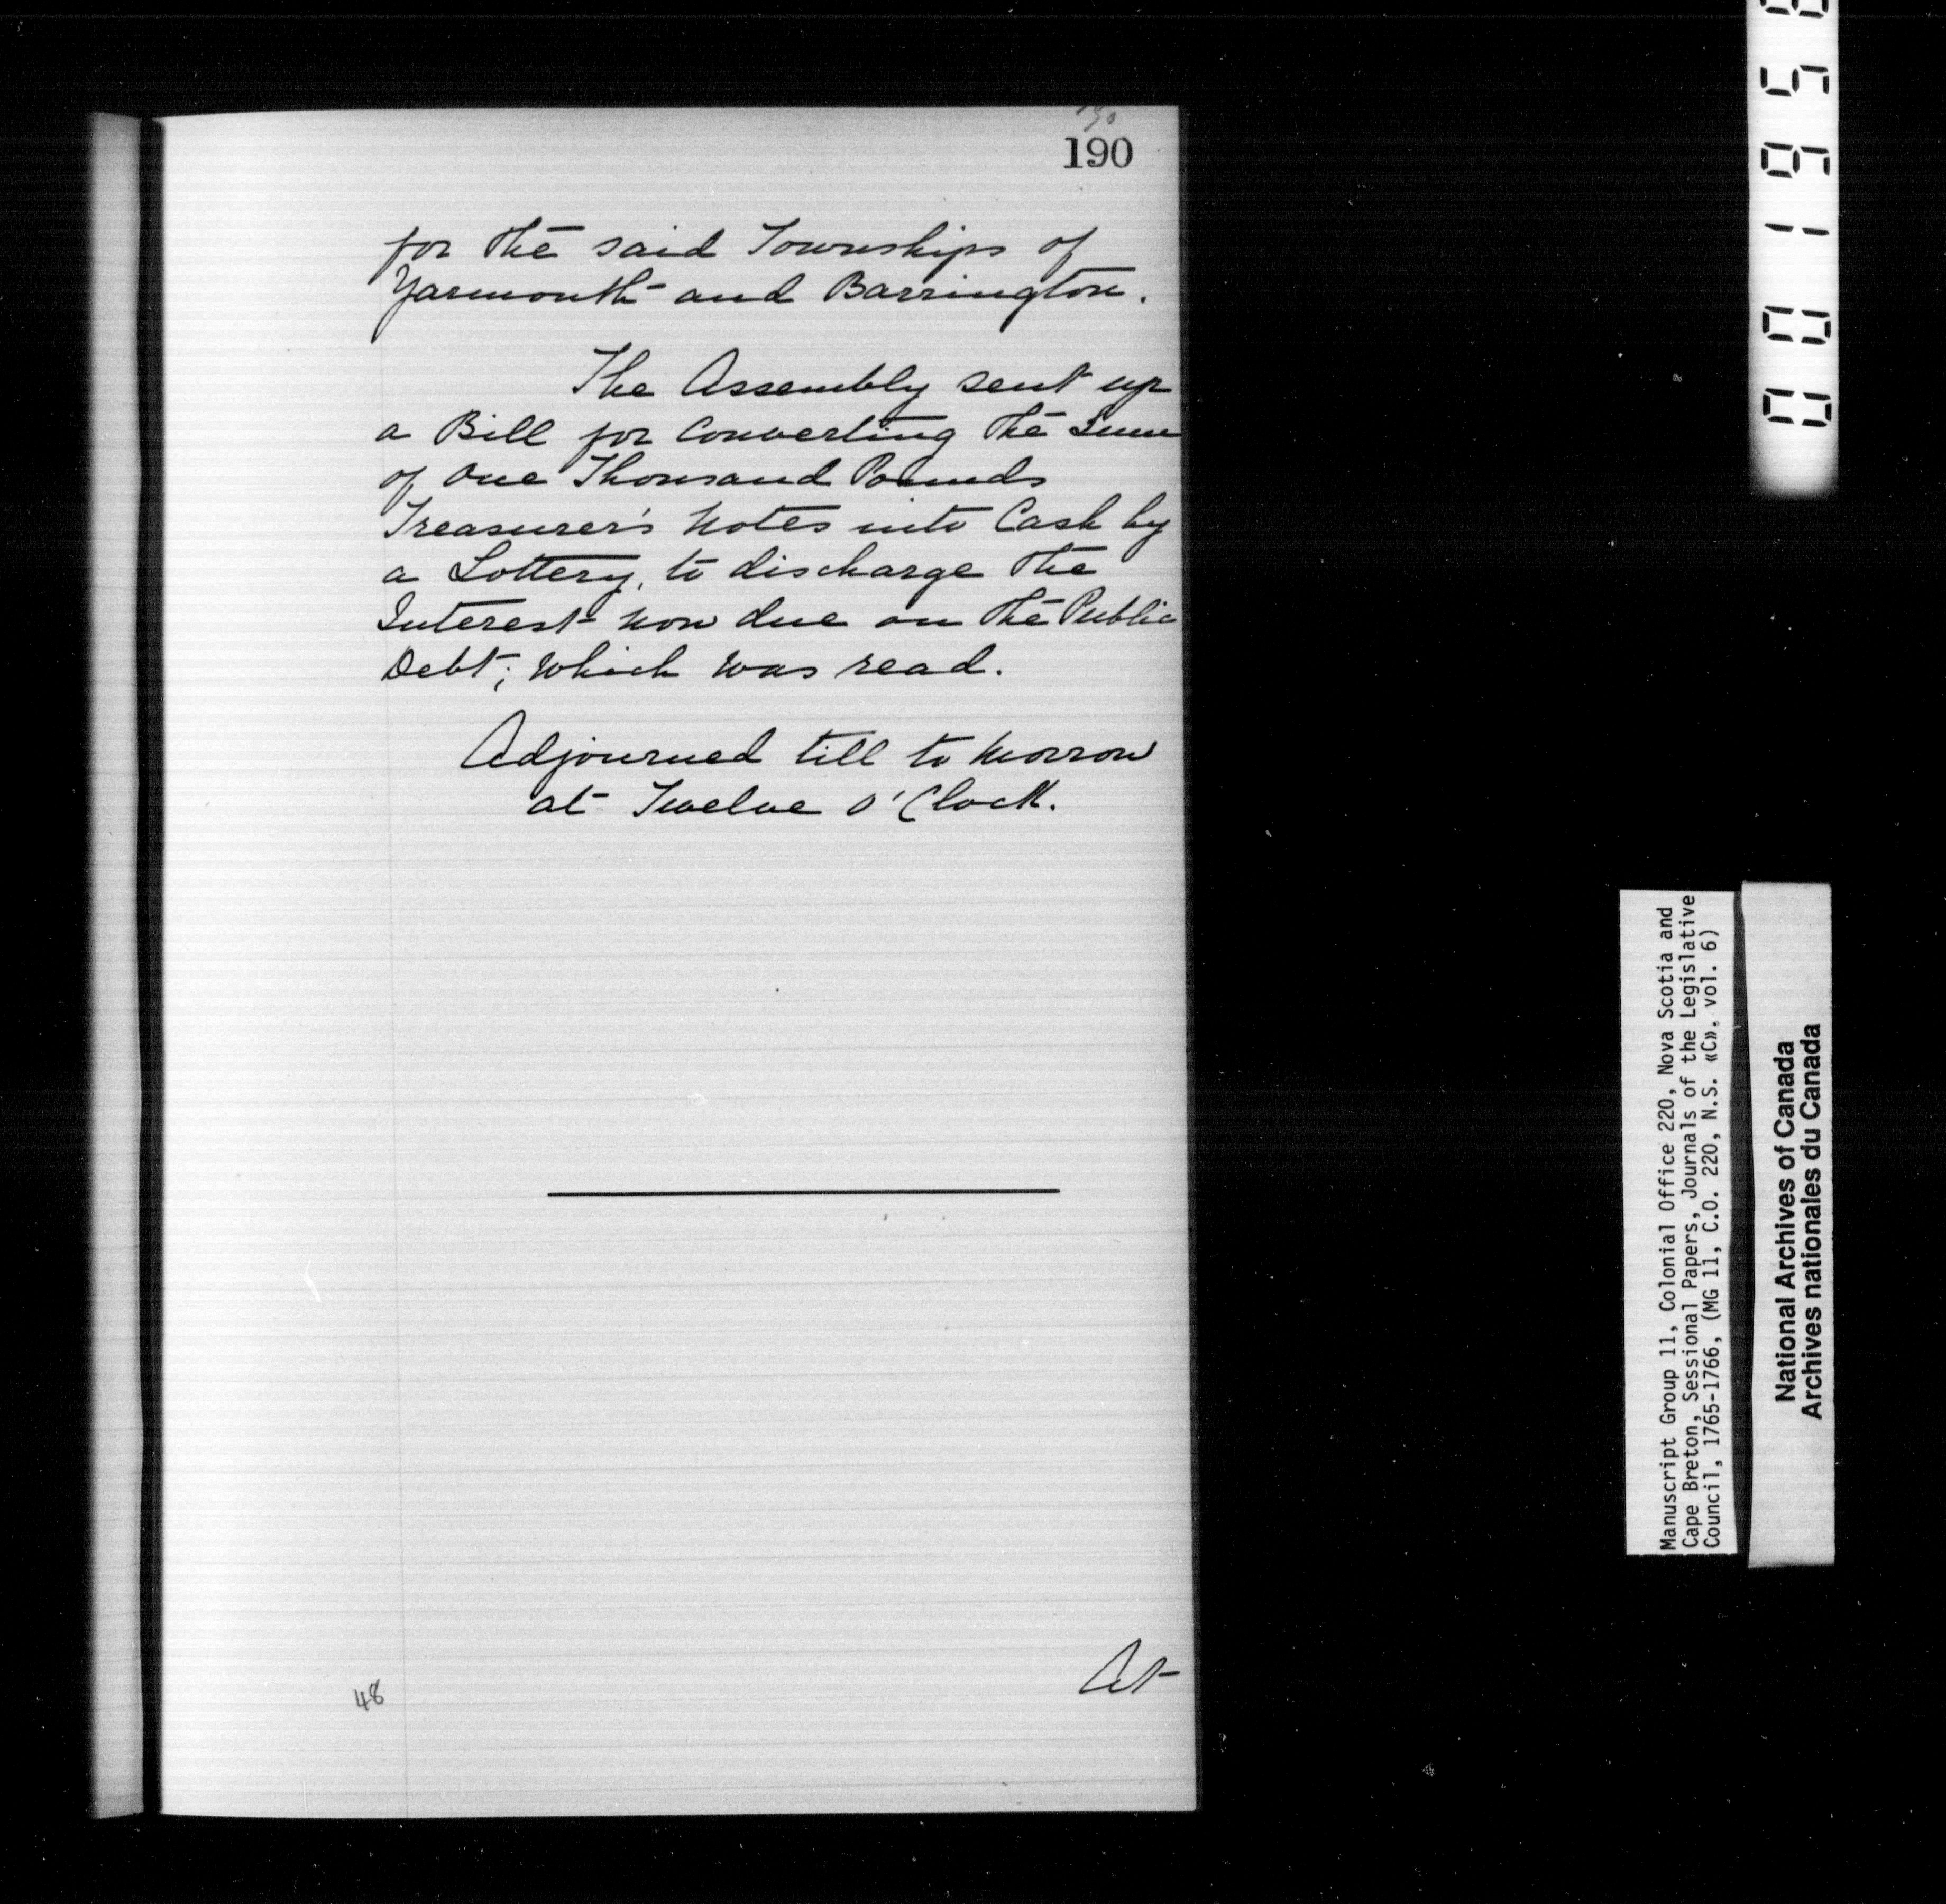 190
for the said Townships of
Yarmouth and Barrington.
The Assembly sent up
a Bill for Converting the Sum
of One Thousand Pounds
Treasurer's Notes into Cash by
a Lottery, to discharge the
Interest now due on the Public
Debt; which was read.
Adjourned till to Morrow
at Twelve O'Clock.
At
48
Manuscript Group 11, Colonial Office 220, Nova Scotia and
Cape Breton, Sessional Papers, Journals of the Legislative
Council, 1765-1766, (MG 11, C.O. 220, N.S. «C», vol. 6)
National Archives of Canada
Archives nationales du Canada